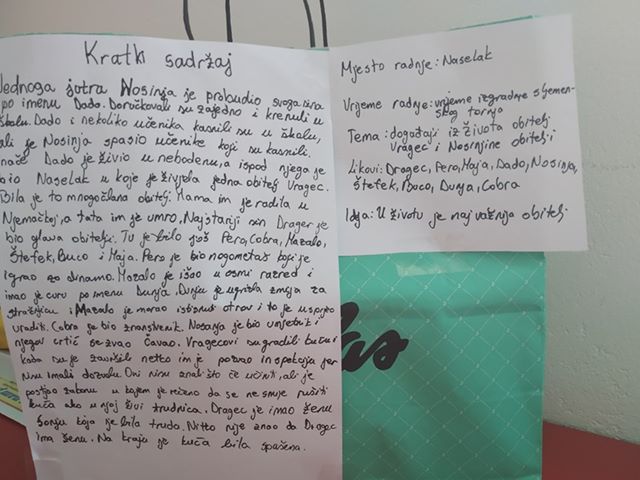 Kratki sadržaj
Jednoga jutra Nosinja je probudio svoga sina
po imenu Dado. Doručkovali su zajedno i krenuli u
školu. Dado i nekoliko učenika kasnili su u školu,
ali je Nosinja spasio učenike koji su kasnili.
inače Dado je živio u neboderu, a ispod njega je
bio Naselak u koje je živjela jedna obitelj Vragec.
Bila je to mnogočlana obitelj. Mama im je radila u
Njemačkoj, a tata im je umro, Najstariji sin Drager je
bio glava obitelji. Tu je bilo još Pero, Cobra, Mazalo,
Štefek, Buco i Maja. Pero je bio nogometaš koji je
igrao za dinamo. Mazalo je išao u osmi razred i
imao je curu po imenu Dunja. Dunju je ugrizla zmija za
stražnjicu i Mazalo je morao isisnut otrov i to je uspješno
uradit. Cobra je bio znanstvenik. Nosinja je bio umjetnik i
njegov crtić se zvao Čavao. Vragecovi su gradili kuću i
kada su je završili netko im je pozvao inspekciju jer
nisu imali dozvolu. Oni nisu znali što će učiniti, ali je
postojao zakonu u kojem je rečeno da se ne smije rušiti
kuća ako u njoj živi trudnica. Dragec je imao ženu
Sonju koja je bila trudna. Nitko nije znao da Dragec
ima ženu. Na kraju je kuća bila spašena.
Mjesto radnje: Naselak
Vrijeme radnje: vrijeme izgradnje sljemen-
skog tornja
Tema: događaji iz života obitelj
Vragec i Nosinjine obitelji
Likovi: Dragec, Pero, Maja, Dado, Nosinja,
Štefek, Buco, Dunja, Cobra
Ideja: U životu je najvažnija obitelj